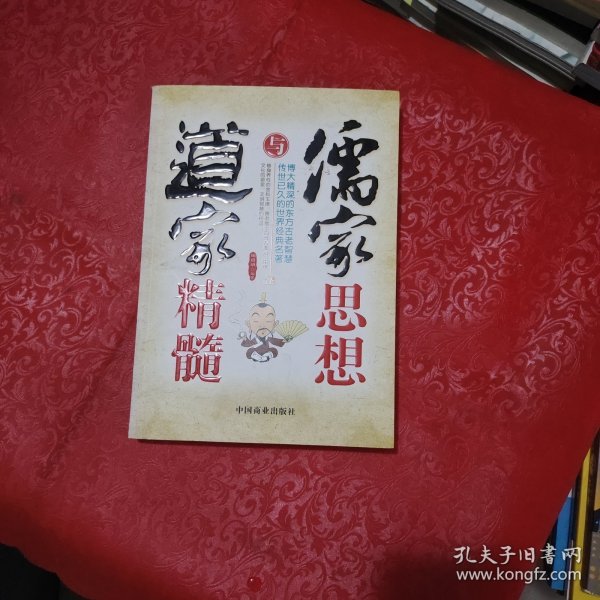 儒家思想
与
道家精髓
博大精深的东方古老智慧
传世已久的世界经典名著
中国商业出版社
孔夫子旧书网
www.kongfz.com